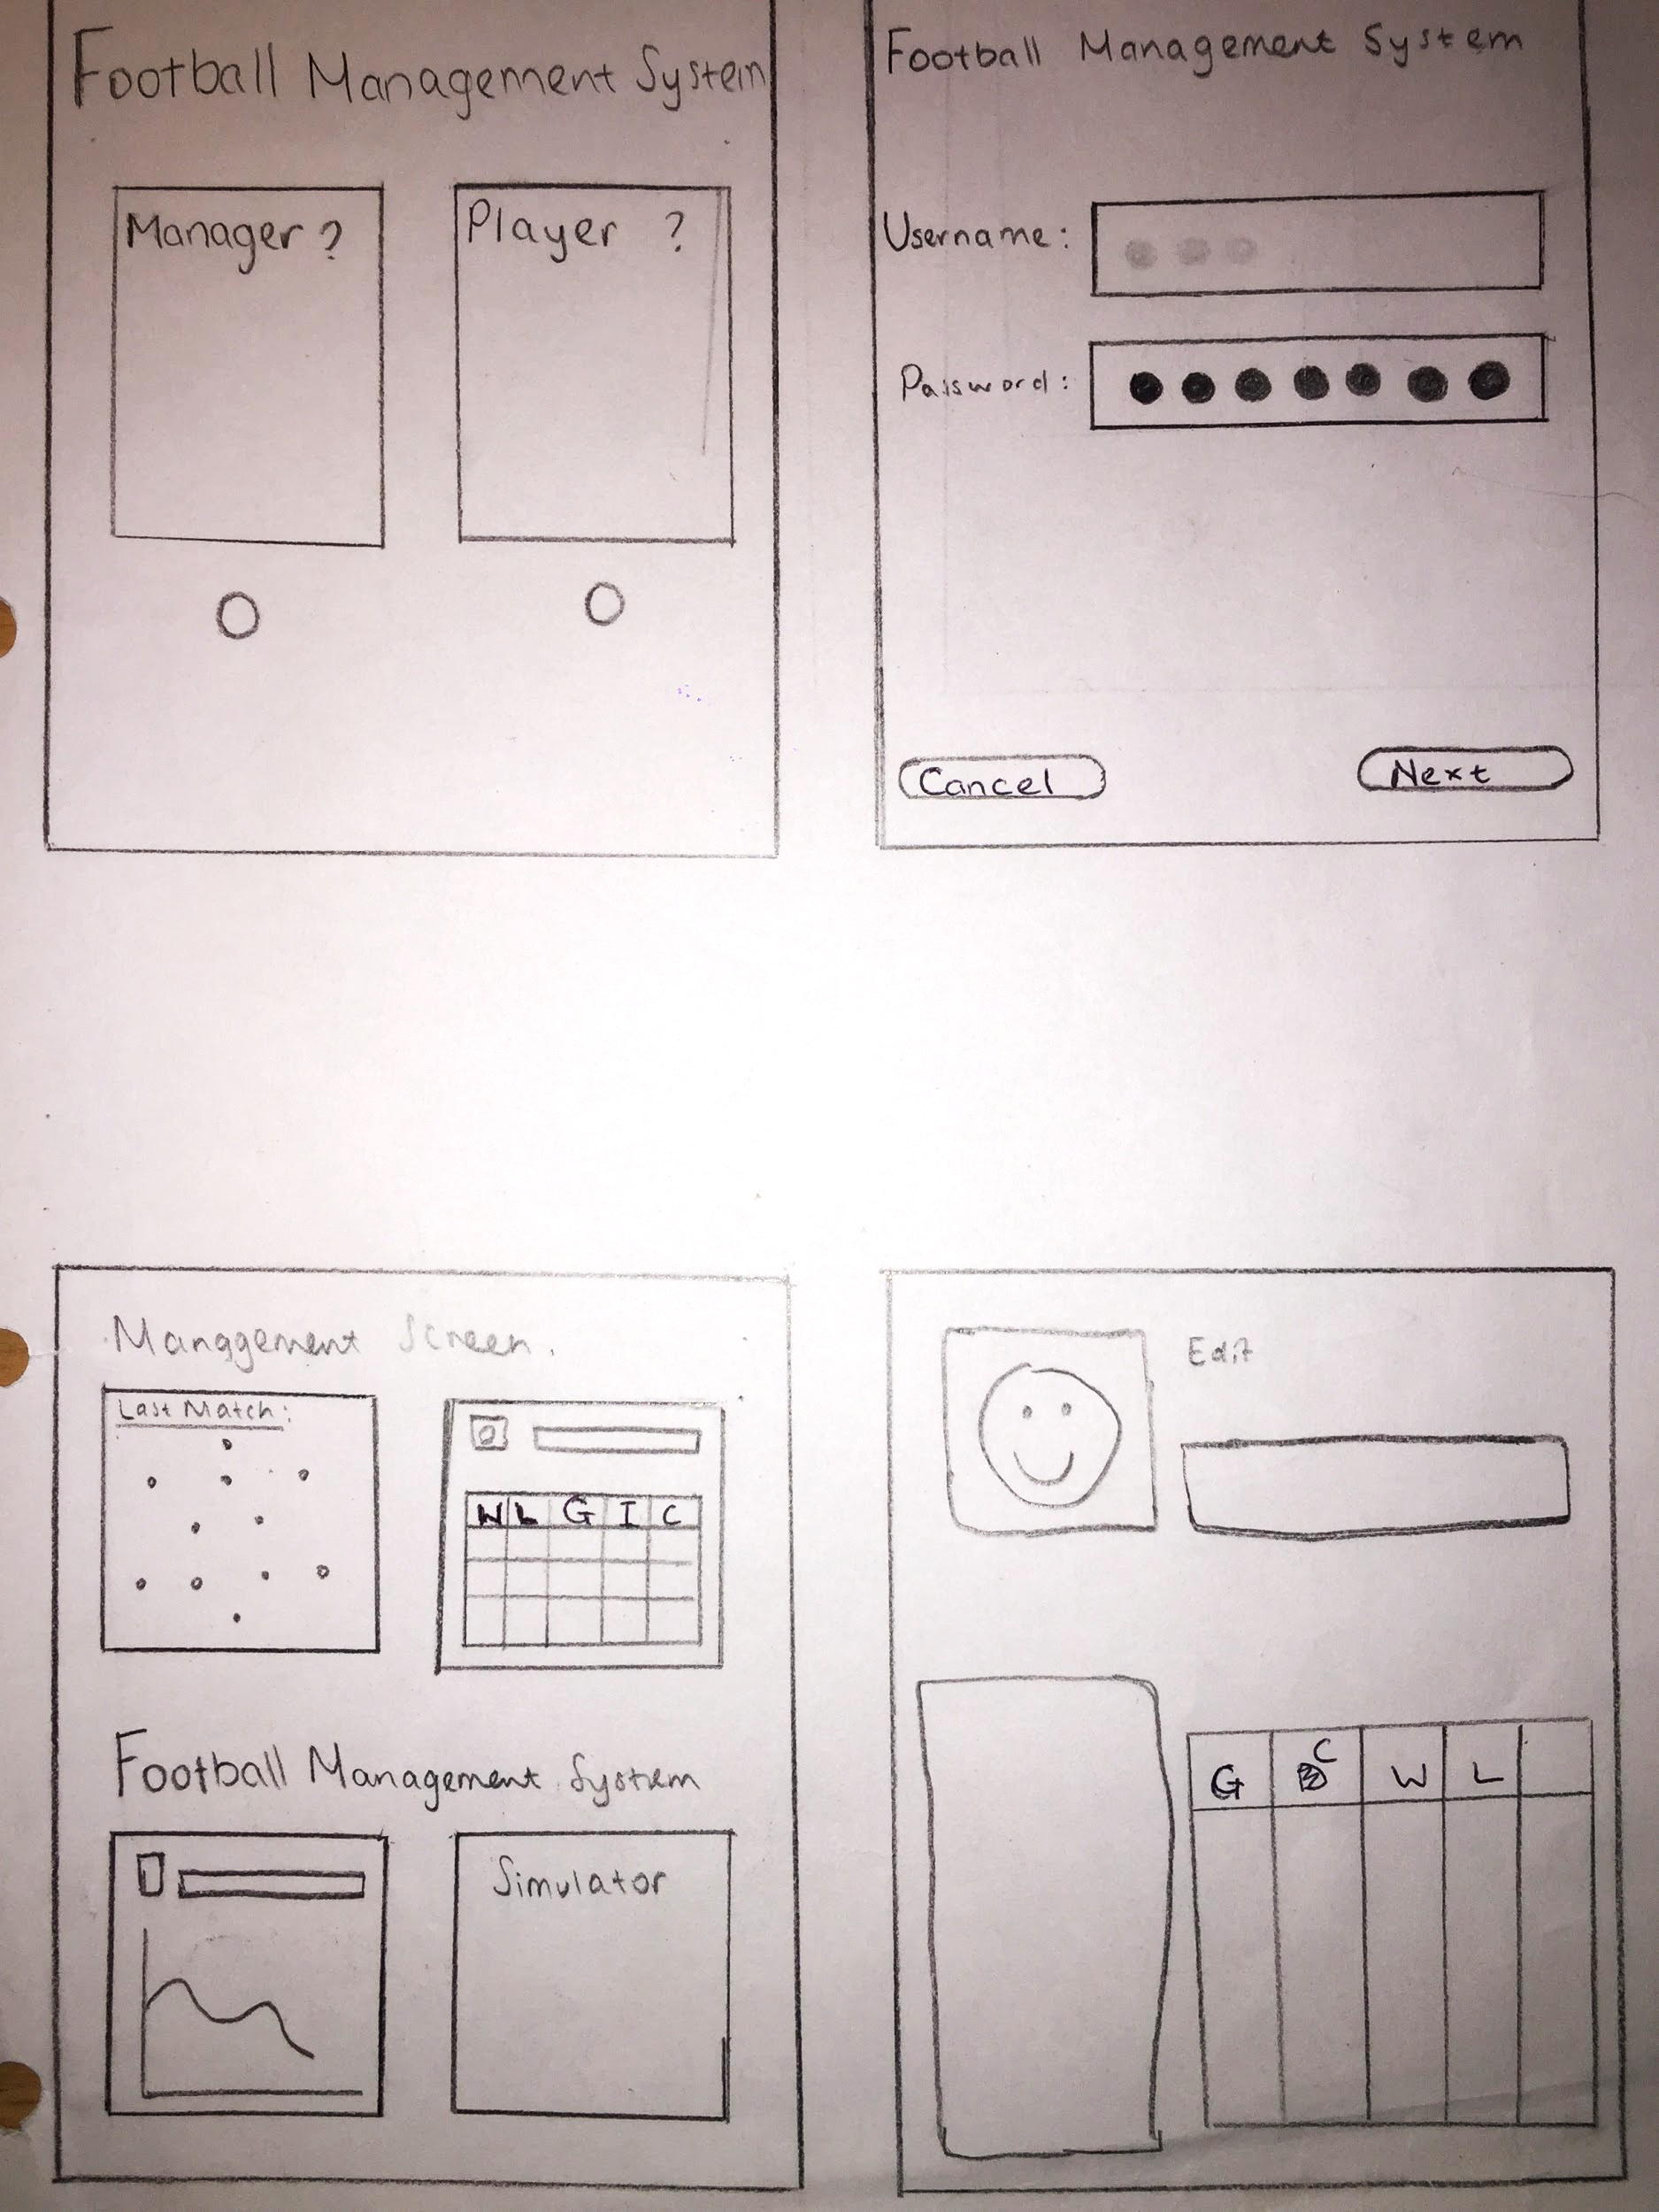 Football Management System
Manager ?
Player ?
Football Management System
Username :
Password :
Cancel
Next
Management Screen.
Last Match:
W L G I C
Football Management System
Simulator
Edit
G C W L